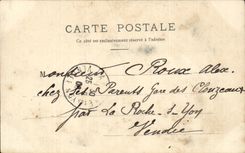 CARTE POSTALE
Ce côté est exclusivement réservé à l'adresse
Monsieur Roux Alex.
chez ses Parents Gare des Clouzeaux
par La Roche-s-Yon
Vendée